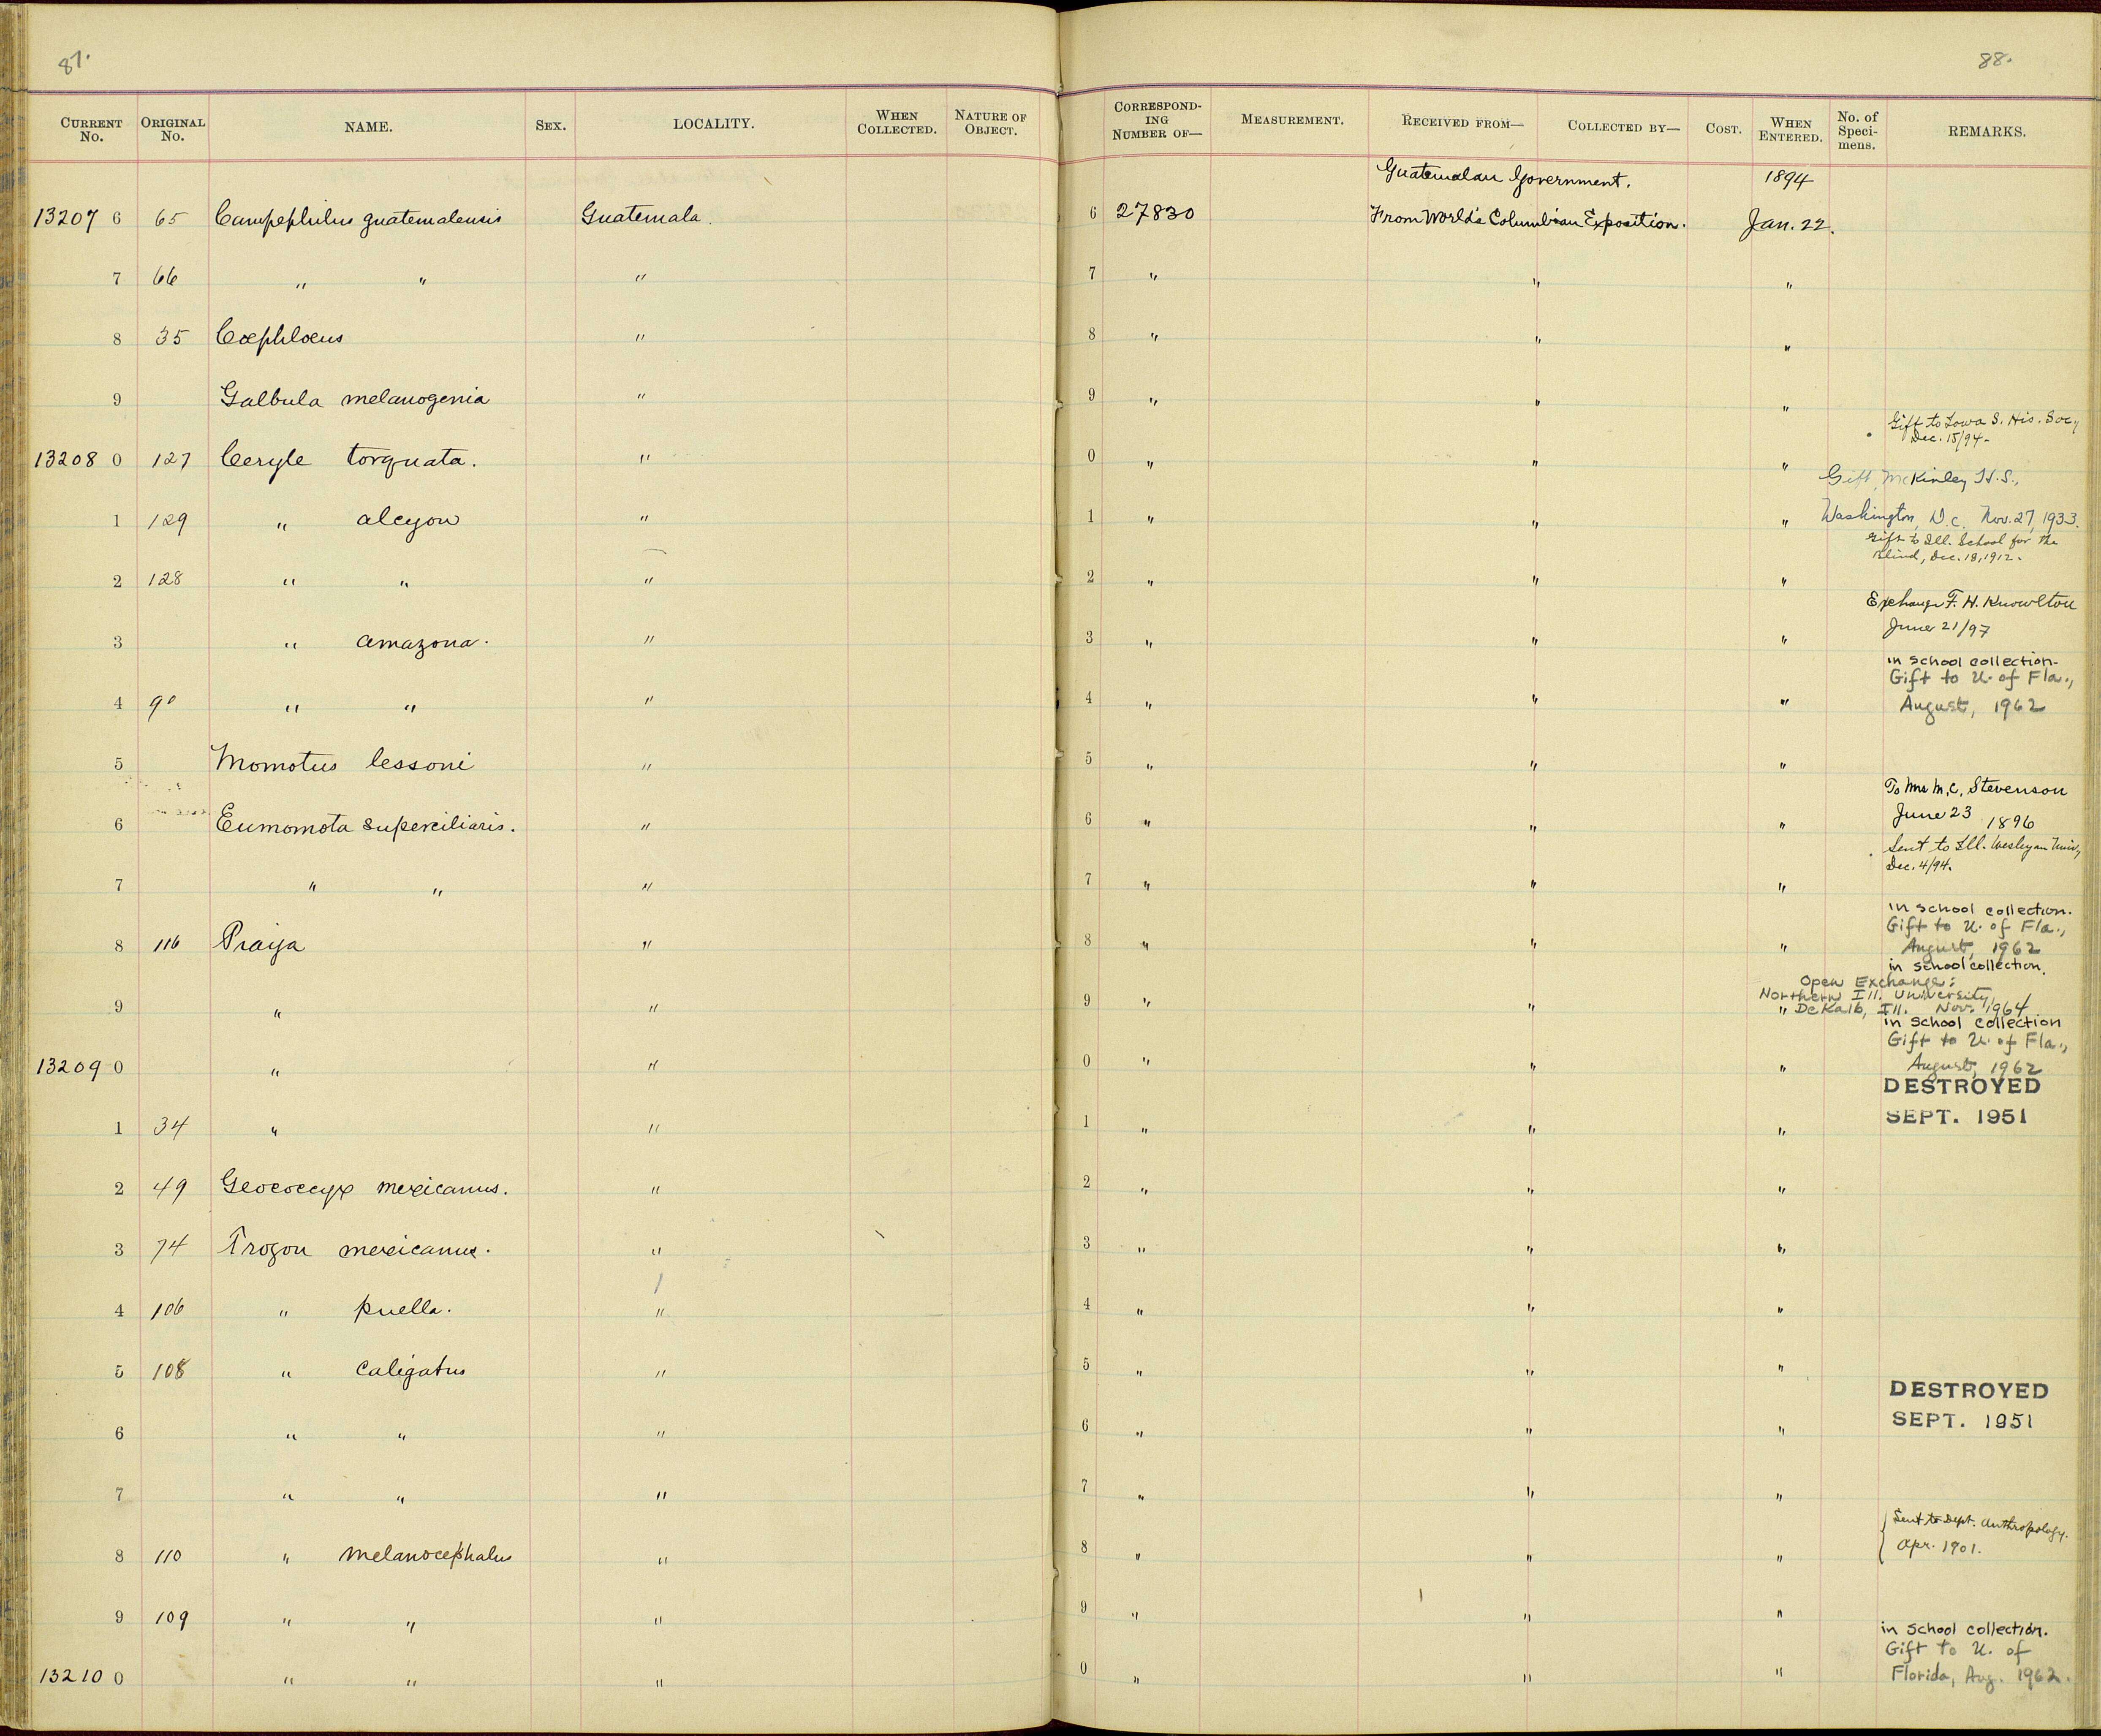 87.
88.
CURRENT No. ORIGINAL No. NAME. SEX. LOCALITY. WHEN COLLECTED. NATURE OF OBJECT. CORRESPONDING NUMBER OF— MEASUREMENT. RECEIVED FROM— COLLECTED BY— COST. WHEN ENTERED. No. of Specimens. REMARKS.
Guatemalan Government. 1894
13207 6 65 Campephilus guatemalensis Guatemala. 6 27830 From World's Columbian Exposition. Jan. 22.
7 66 " " " 7 " " "
8 35 Cœphlœus " 8 " " "
9 Galbula melanogenia " 9 " " "
Gift to Iowa S. His. Soc.,
Dec. 15/94-
13208 0 127 Ceryle torquata. " 0 " " "
Gift, McKinley H.S.,
1 129 " alcyon " 1 " " " Washington, D.C. Nov. 27, 1933.
Gift to Ill. School for the
Blind, Dec. 18, 1912.
2 128 " " " 2 " " "
Exchange F. H. Knowlton
June 21/97
3 " amazona. " 3 " " "
in school collection-
Gift to U. of Fla.,
4 90 " " " 4 " " " August, 1962
5 Momotus lessoni " 5 " " "
To Mrs M. C. Stevenson
June 23 1896
6 Eumomota superciliaris. " 6 " " "
Sent to Ill. Wesleyan Univ,
Dec. 4/94.
7 " " " 7 " " "
in school collection.
Gift to U. of Fla.,
8 116 Piaya " 8 " " " August, 1962
in school collection.
Open Exchange:
Northern Ill. University,
9 " " 9 " " " DeKalb, Ill. Nov. 1964
in school collection
Gift to U. of Fla.,
13209 0 " " 0 " " " August, 1962
DESTROYED
SEPT. 1951
1 34 " " 1 " " "
2 49 Geococcyx mexicanus. " 2 " " "
3 74 Trogon mexicanus. " 3 " " "
4 106 " puella. " 4 " " "
5 108 " caligatus " 5 " " "
DESTROYED
SEPT. 1951
6 " " " 6 " " "
7 " " " 7 " " "
Sent to Dept. Anthropology.
Apr. 1901.
8 110 " melanocephalus " 8 " " "
9 109 " " " 9 " " "
in school collection.
Gift to U. of
13210 0 " " " 0 " " " Florida, Aug. 1962.